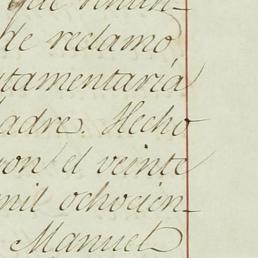 que renun-
de reclamo
tamentaría
adre. Hecho
yon el veinte
mil ochocien-
Manuel